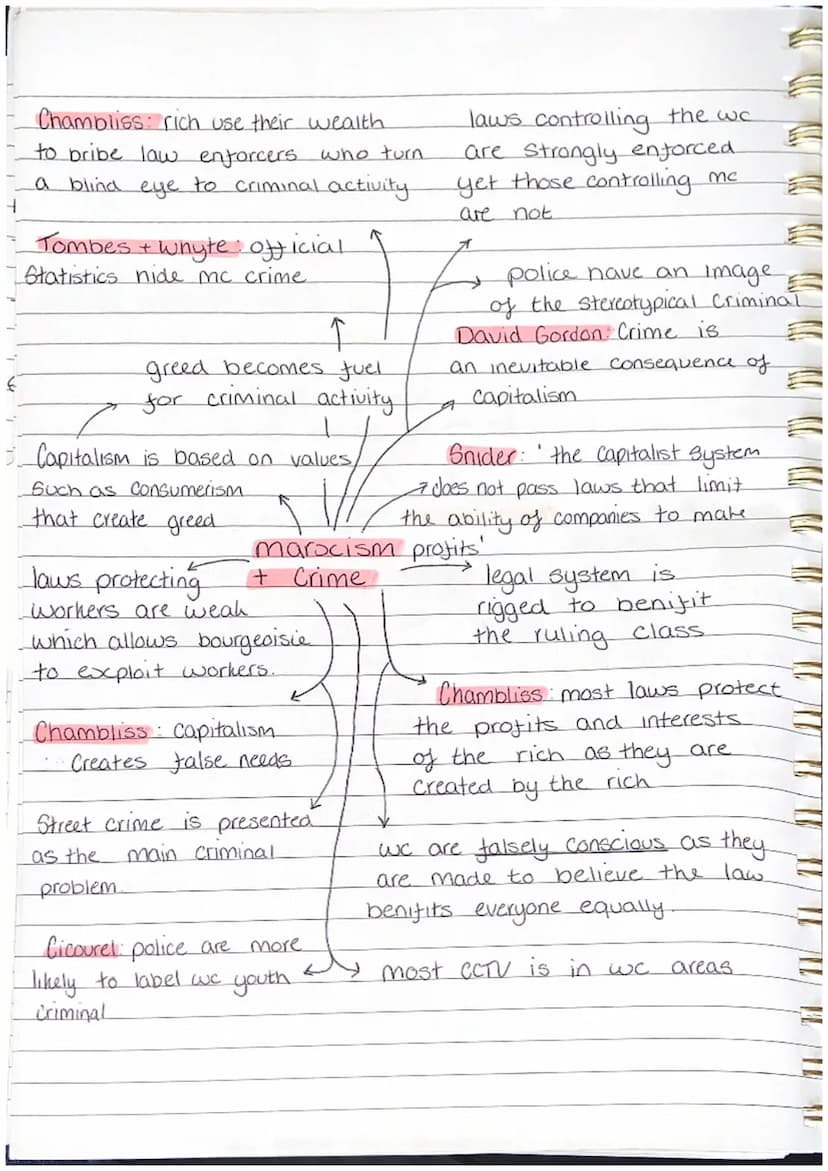 Chambliss: rich use their wealth
to bribe law enforcers who turn
a blind eye to criminal activity
laws controlling the wc
are strongly enforced
yet those controlling mc
are not
Tombes + Whyte: official
Statistics hide mc crime
police have an image
of the stereotypical criminal
David Gordon: Crime is
an inevitable consequence of
capitalism
greed becomes fuel
for criminal activity
Capitalism is based on values
such as consumerism
that create greed
Snider: 'the capitalist system
does not pass laws that limit
the ability of companies to make
profits'
marxism
+ Crime
laws protecting
workers are weak
which allows bourgeoisie
to exploit workers.
legal system is
rigged to benifit
the ruling class
Chambliss: capitalism
Creates false needs
Chambliss: most laws protect
the profits and interests
of the rich as they are
created by the rich
Street crime is presented
as the main criminal
problem
wc are falsely conscious as they
are made to believe the law
benifits everyone equally.
Cicourel: police are more
likely to label wc youth
criminal
most CCTV is in wc areas